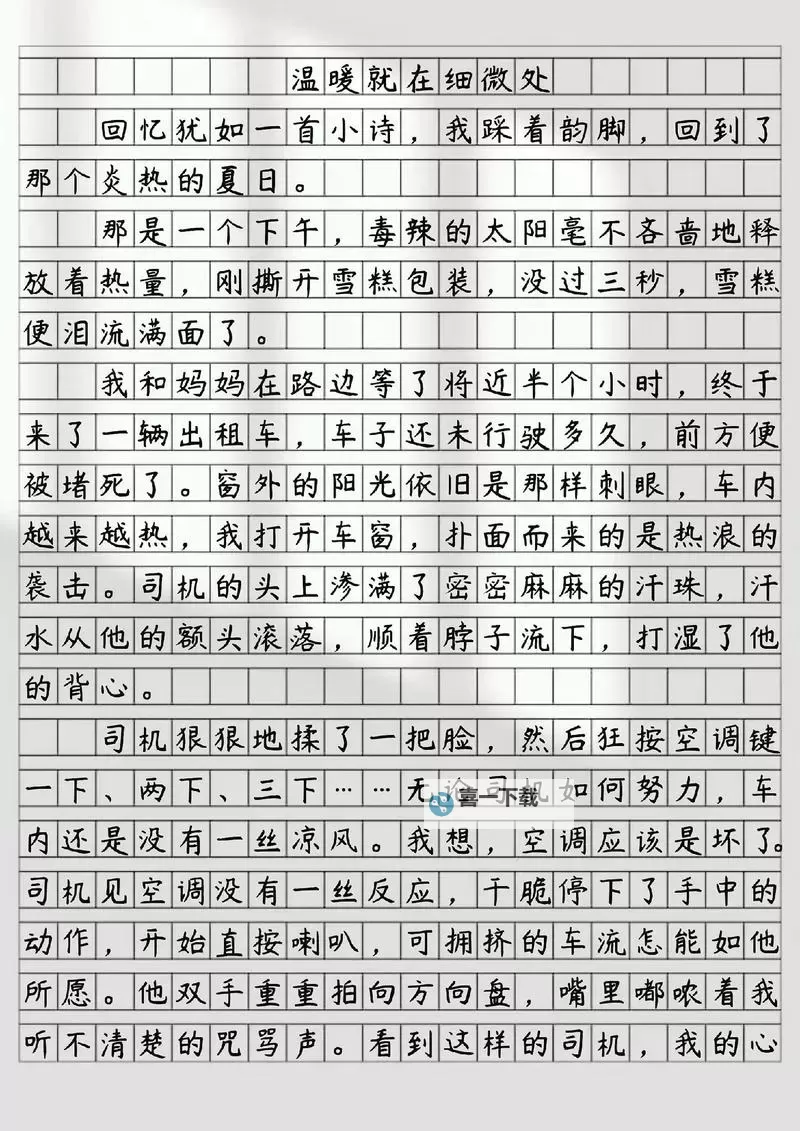 温暖就在细微处
回忆犹如一首小诗，我踩着韵脚，回到了
那个炎热的夏日。
那是一个下午，毒辣的太阳毫不吝啬地释
放着热量，刚撕开雪糕包装，没过三秒，雪糕
便泪流满面了。
我和妈妈在路边等了将近半个小时，终于
来了一辆出租车，车子还未行驶多久，前方便
被堵死了。窗外的阳光依旧是那样刺眼，车内
越来越热，我打开车窗，扑面而来的是热浪的
袭击。司机的头上渗满了密密麻麻的汗珠，汗
水从他的额头滚落，顺着脖子流下，打湿了他
的背心。
司机狠狠地揉了一把脸，然后狂按空调键
一下、两下、三下……无论司机如何努力，车
喜一下载
内还是没有一丝凉风。我想，空调应该是坏了。
司机见空调没有一丝反应，干脆停下了手中的
动作，开始直按喇叭，可拥挤的车流怎能如他
所愿。他双手重重拍向方向盘，嘴里嘟哝着我
听不清楚的咒骂声。看到这样的司机，我的心